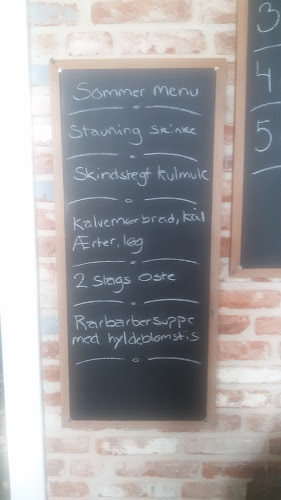 Sommer menu
Stauning skinke
Skindstegt kulmule
Kalvemørbrad, kål
Ærter, løg
2 slags oste
Rarbarbersuppe
med hyldeblomstis
3
4
5